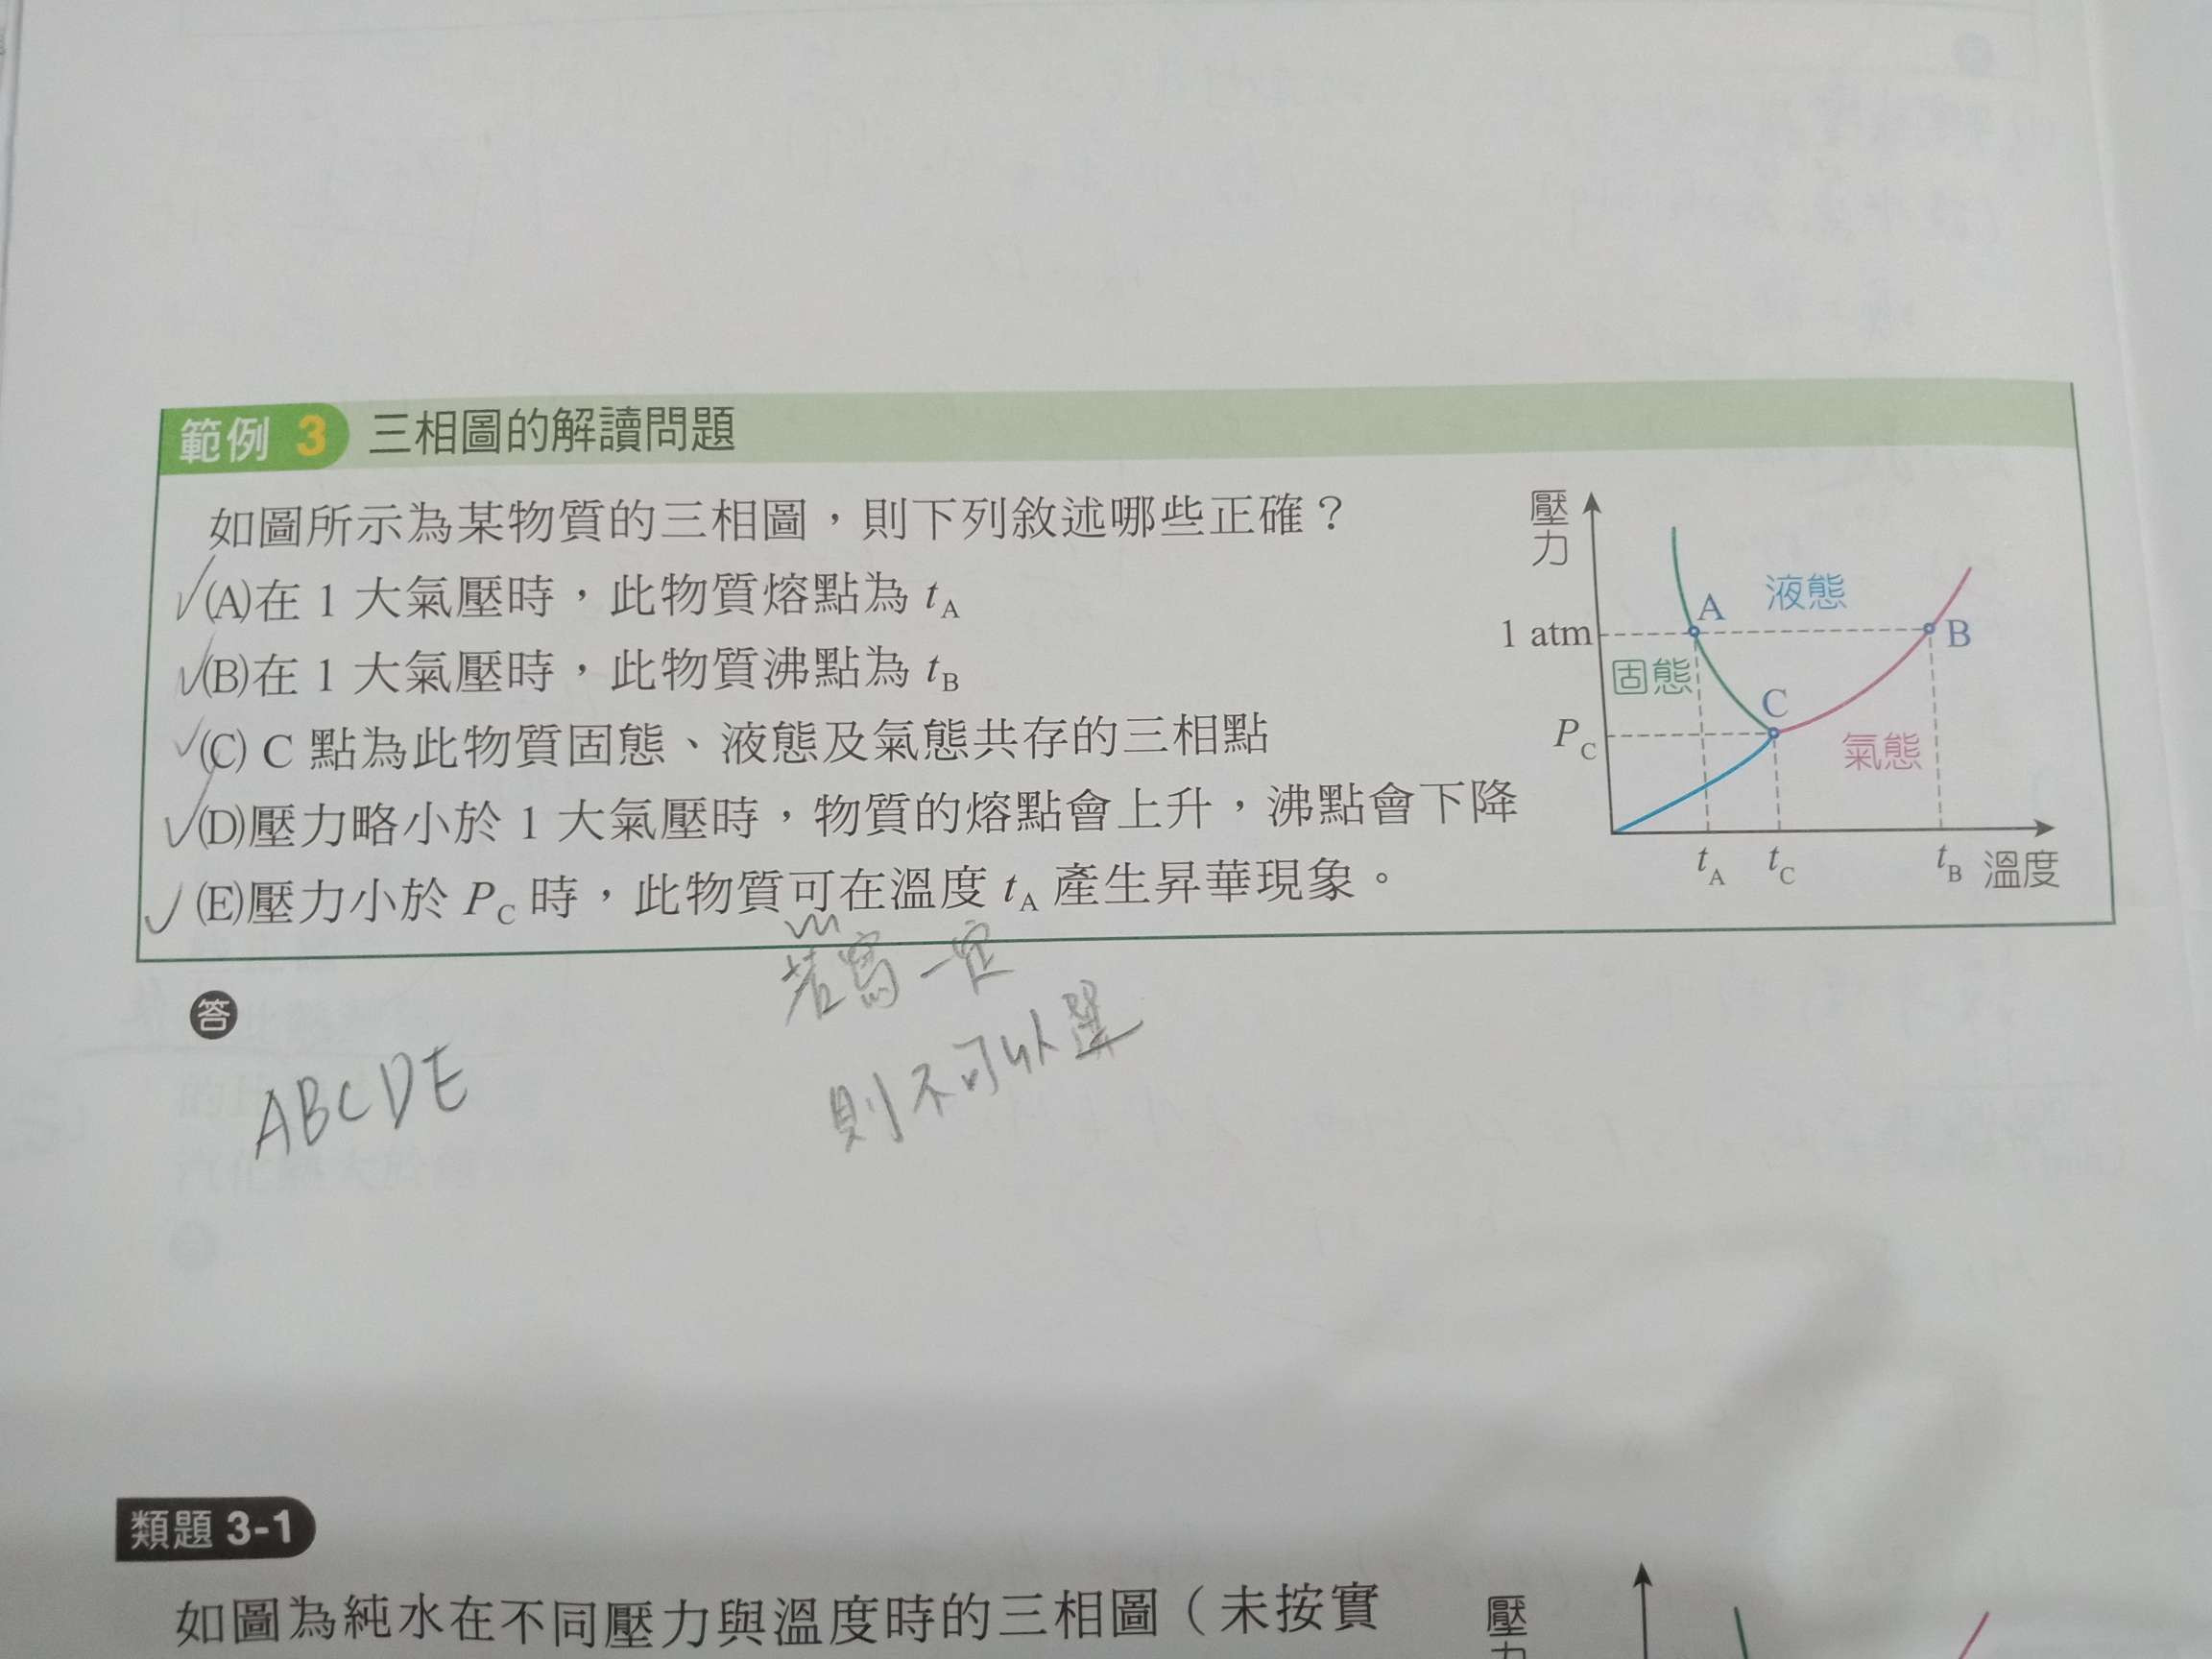 範例 3 三相圖的解讀問題
如圖所示為某物質的三相圖，則下列敘述哪些正確？
(A)在 1 大氣壓時，此物質熔點為 tA
(B)在 1 大氣壓時，此物質沸點為 tB
(C) C 點為此物質固態、液態及氣態共存的三相點
(D)壓力略小於 1 大氣壓時，物質的熔點會上升，沸點會下降
(E)壓力小於 PC 時，此物質可在溫度 tA 產生昇華現象。
壓力
A
液態
1 atm
B
固態
C
PC
氣態
tA
tC
tB
溫度
若寫一定
則不可以選
答
ABCDE
類題 3-1
如圖為純水在不同壓力與溫度時的三相圖（未按實
壓力